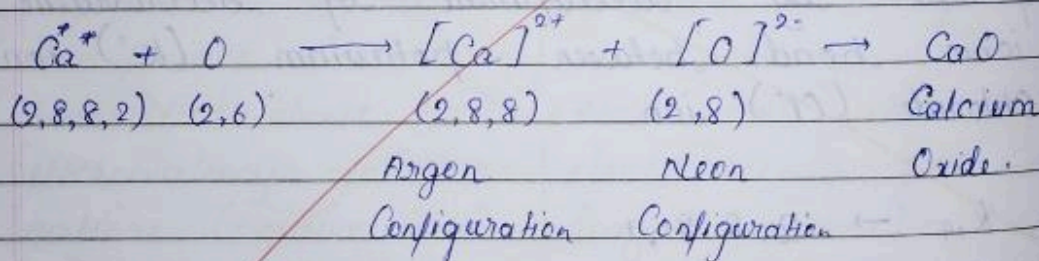 Ca** + O ⟶ [Ca]²⁺ + [O]²⁻ → CaO
(2,8,8,2) (2,6) (2,8,8) (2,8) Calcium
Argon Neon Oxide.
Configuration Configuration